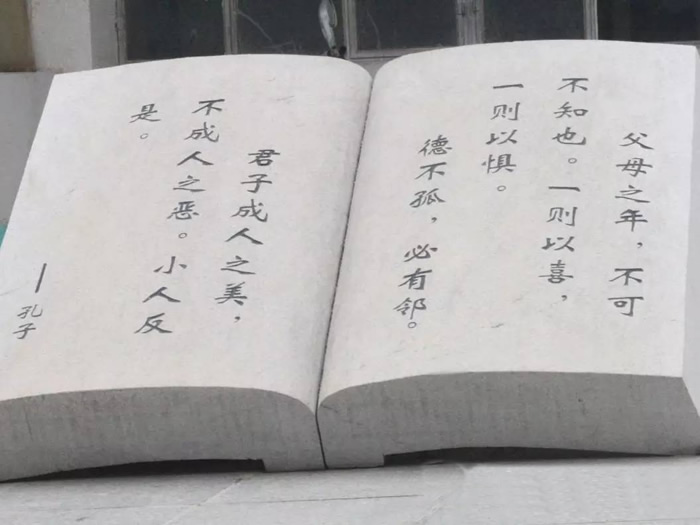 父母之年，不可
不知也。一则以喜，
一则以惧。
德不孤，必有邻。
君子成人之美，
不成人之恶。小人反
是。
—孔子